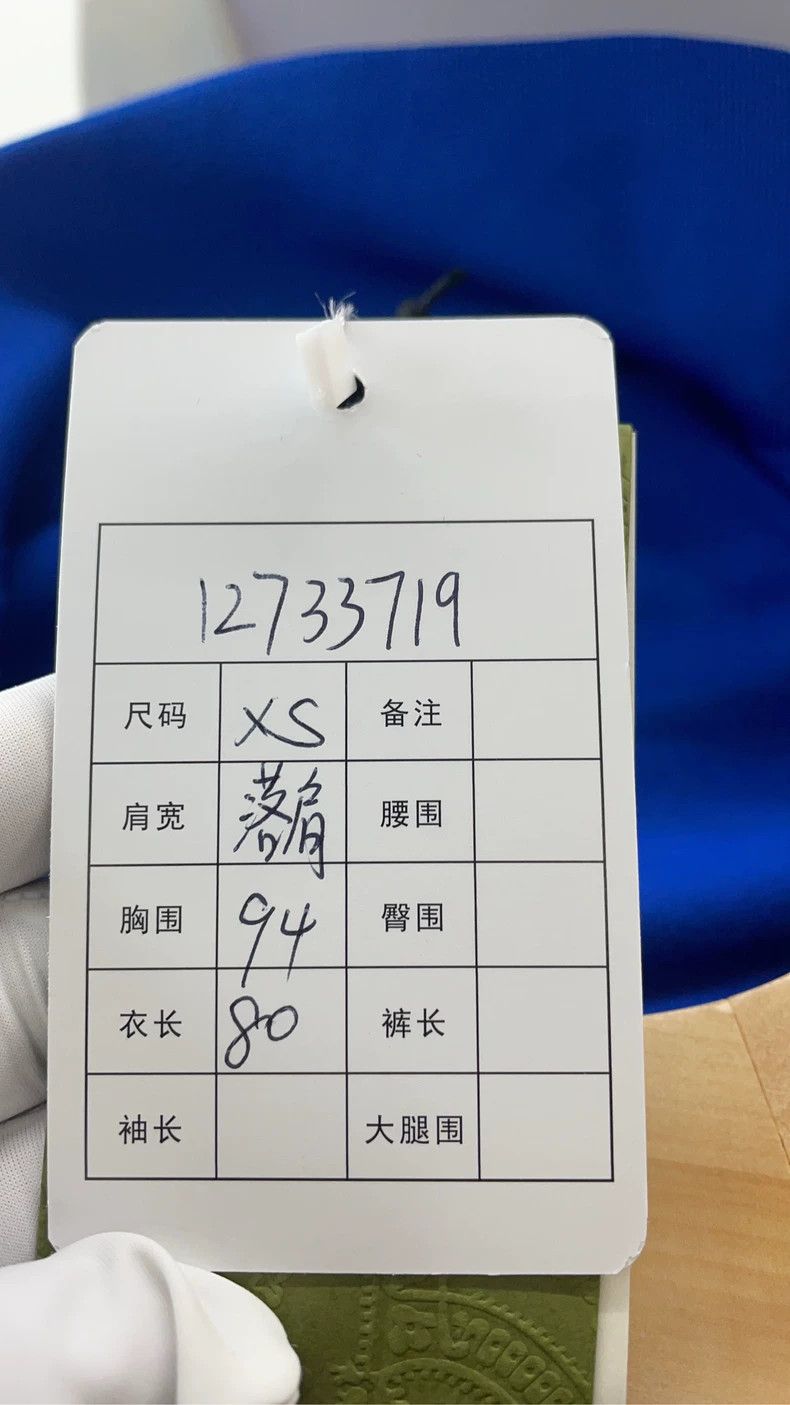 12733719
尺码 XS 备注
肩宽 落肩 腰围
胸围 94 臀围
衣长 80 裤长
袖长 大腿围